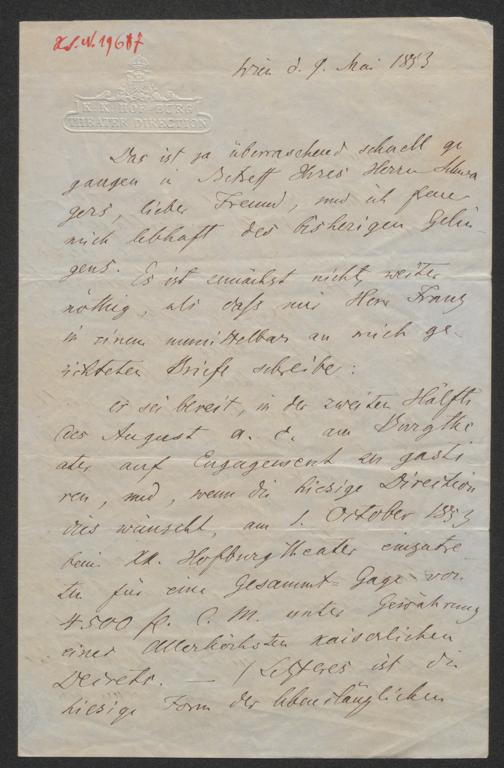 H.S.N. 19687
K. K. HOF-BURG
THEATER DIRECTION
Wien d. 9. Mai 1853
Das ist ja überraschend schnell ge
gangen in Betreff Ihres Herrn Schwa
gers, lieber Freund, und ich freue
mich lebhaft des bisherigen Gelin-
gens. Es ist zunächst nichts weiter
nöthig, als daß mir Herr Franz
in einem unmittelbar an mich ge-
richteten Briefe schreibe:
er sei bereit, in der zweiten Hälfte
des August a. c. am Burgthe
ater auf Engagement zu gasti
ren, und, wenn die hiesige Direction
dies wünscht, am 1. October 1853
beim KK. Hofburgtheater einzutre
ten für eine Gesammt-Gage von
4500 fl. C. M. unter Gewährung
eines Allerhöchsten kaiserlichen
Decrets. — / Letzteres ist die
hiesige Form der lebenslänglichen